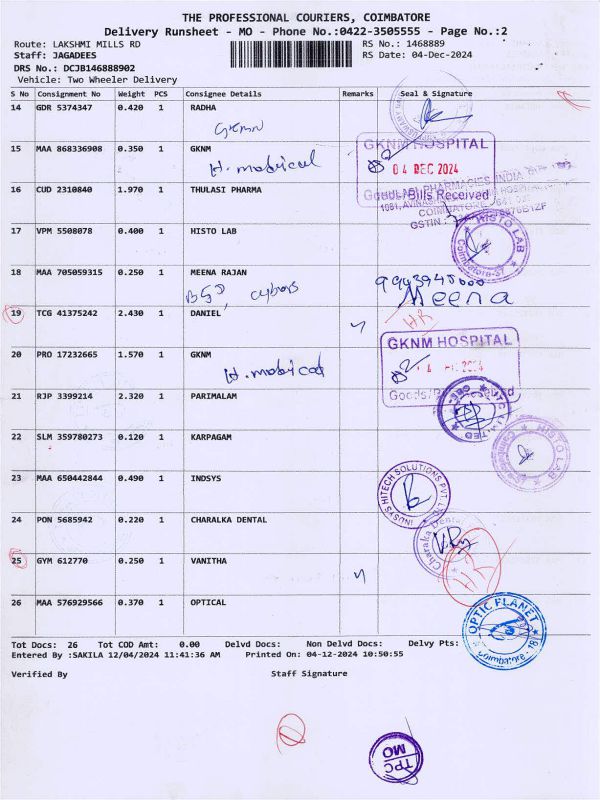 THE PROFESSIONAL COURIERS, COIMBATORE
Delivery Runsheet - MO - Phone No.:0422-3505555 - Page No.:2
Route: LAKSHMI MILLS RD RS No.: 1468889
Staff: JAGADEES RS Date: 04-Dec-2024
DRS No.: DCJB146888902
Vehicle: Two Wheeler Delivery
S No Consignment No Weight PCS Consignee Details Remarks Seal & Signature
14 GDR 5374347 0.420 1 RADHA
GKMN
15 MAA 868336908 0.350 1 GKNM
H. medical
GKNM HOSPITAL
04 DEC 2024
Goods/Bills Received
16 CUD 2310840 1.970 1 THULASI PHARMA
THULASI PHARMACIES INDIA
COIMBATORE - 641 037
GSTIN :
17 VPM 5508078 0.400 1 HISTO LAB
HISTO LAB
Coimbatore-37
18 MAA 705059315 0.250 1 MEENA RAJAN
Meena
19 TCG 41375242 2.430 1 DANIEL
HR
20 PRO 17232665 1.570 1 GKNM
H. medical
GKNM HOSPITAL
21 RJP 3399214 2.320 1 PARIMALAM
22 SLM 359780273 0.120 1 KARPAGAM
HISTO LAB
23 MAA 650442844 0.490 1 INDSYS
INDSYS HITECH SOLUTIONS PVT. LTD
24 PON 5685942 0.220 1 CHARALKA DENTAL
Charaka Dental
25 GYM 612770 0.250 1 VANITHA
HR
26 MAA 576929566 0.370 1 OPTICAL
OPTIC PLANET
Coimbatore - 18
Tot Docs: 26 Tot COD Amt: 0.00 Delvd Docs: Non Delvd Docs: Delvy Pts:
Entered By :SAKILA 12/04/2024 11:41:36 AM Printed On: 04-12-2024 10:50:55
Verified By Staff Signature
TPC
MO